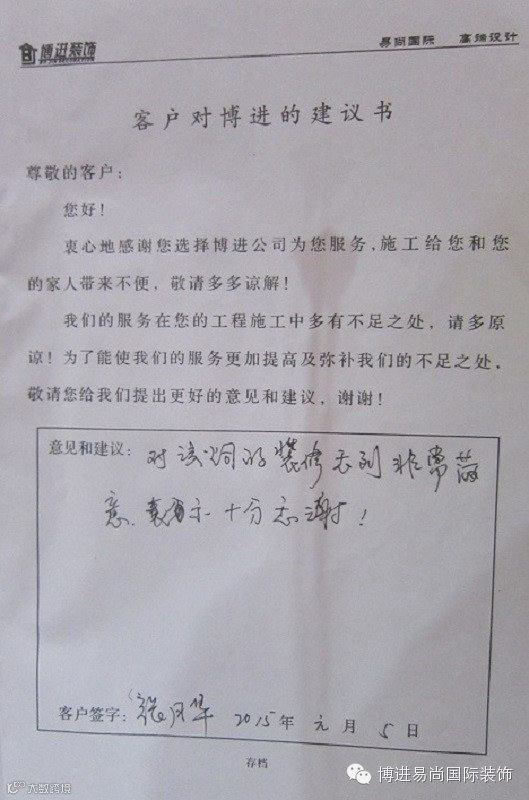 博进装饰 易尚国际 高端设计
客户对博进的建议书
尊敬的客户：
您好！
衷心地感谢您选择博进公司为您服务，施工给您和您
的家人带来不便，敬请多多谅解！
我们的服务在您的工程施工中多有不足之处，请多原
谅！为了能使我们的服务更加提高及弥补我们的不足之处。
敬请您给我们提出更好的意见和建议，谢谢！
意见和建议：对该公司的装修感到非常满
意，表示十分感谢！
客户签字：张月华 2015年元月5日
存档
大数跨境
博进易尚国际装饰